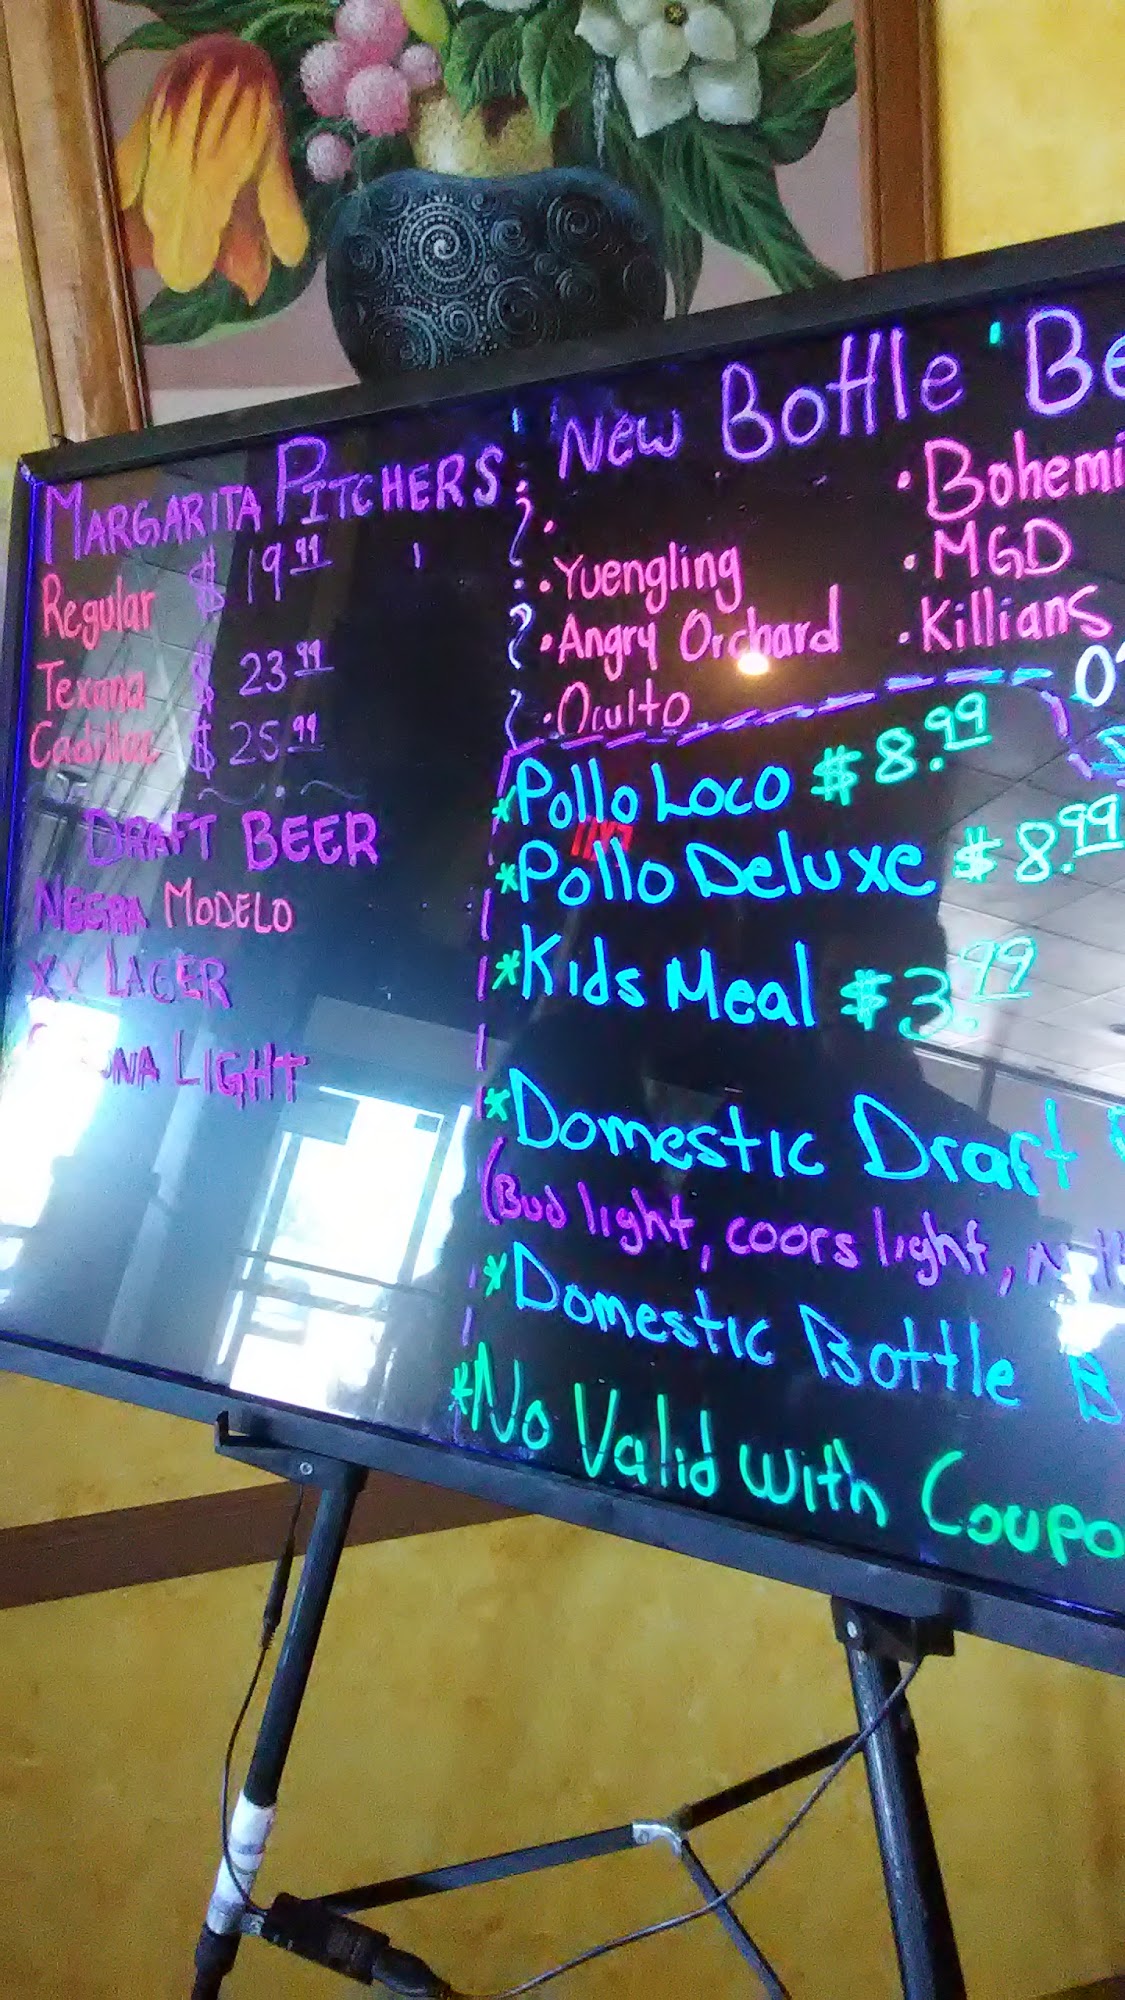 MARGARITA PITCHERS
Regular $19.99
Texana $23.99
Cadillac $25.99
DRAFT BEER
NEGRA MODELO
XX LAGER
LIGHT
New Bottle
• Yuengling
• Angry Orchard
• Oculto
• MGD
• Killians
*Pollo Loco $8.99
*Pollo Deluxe $8.99
*Kids Meal $3.99
*Domestic Draft
(Bud light, coors light,
*Domestic Bottle
*No Valid with